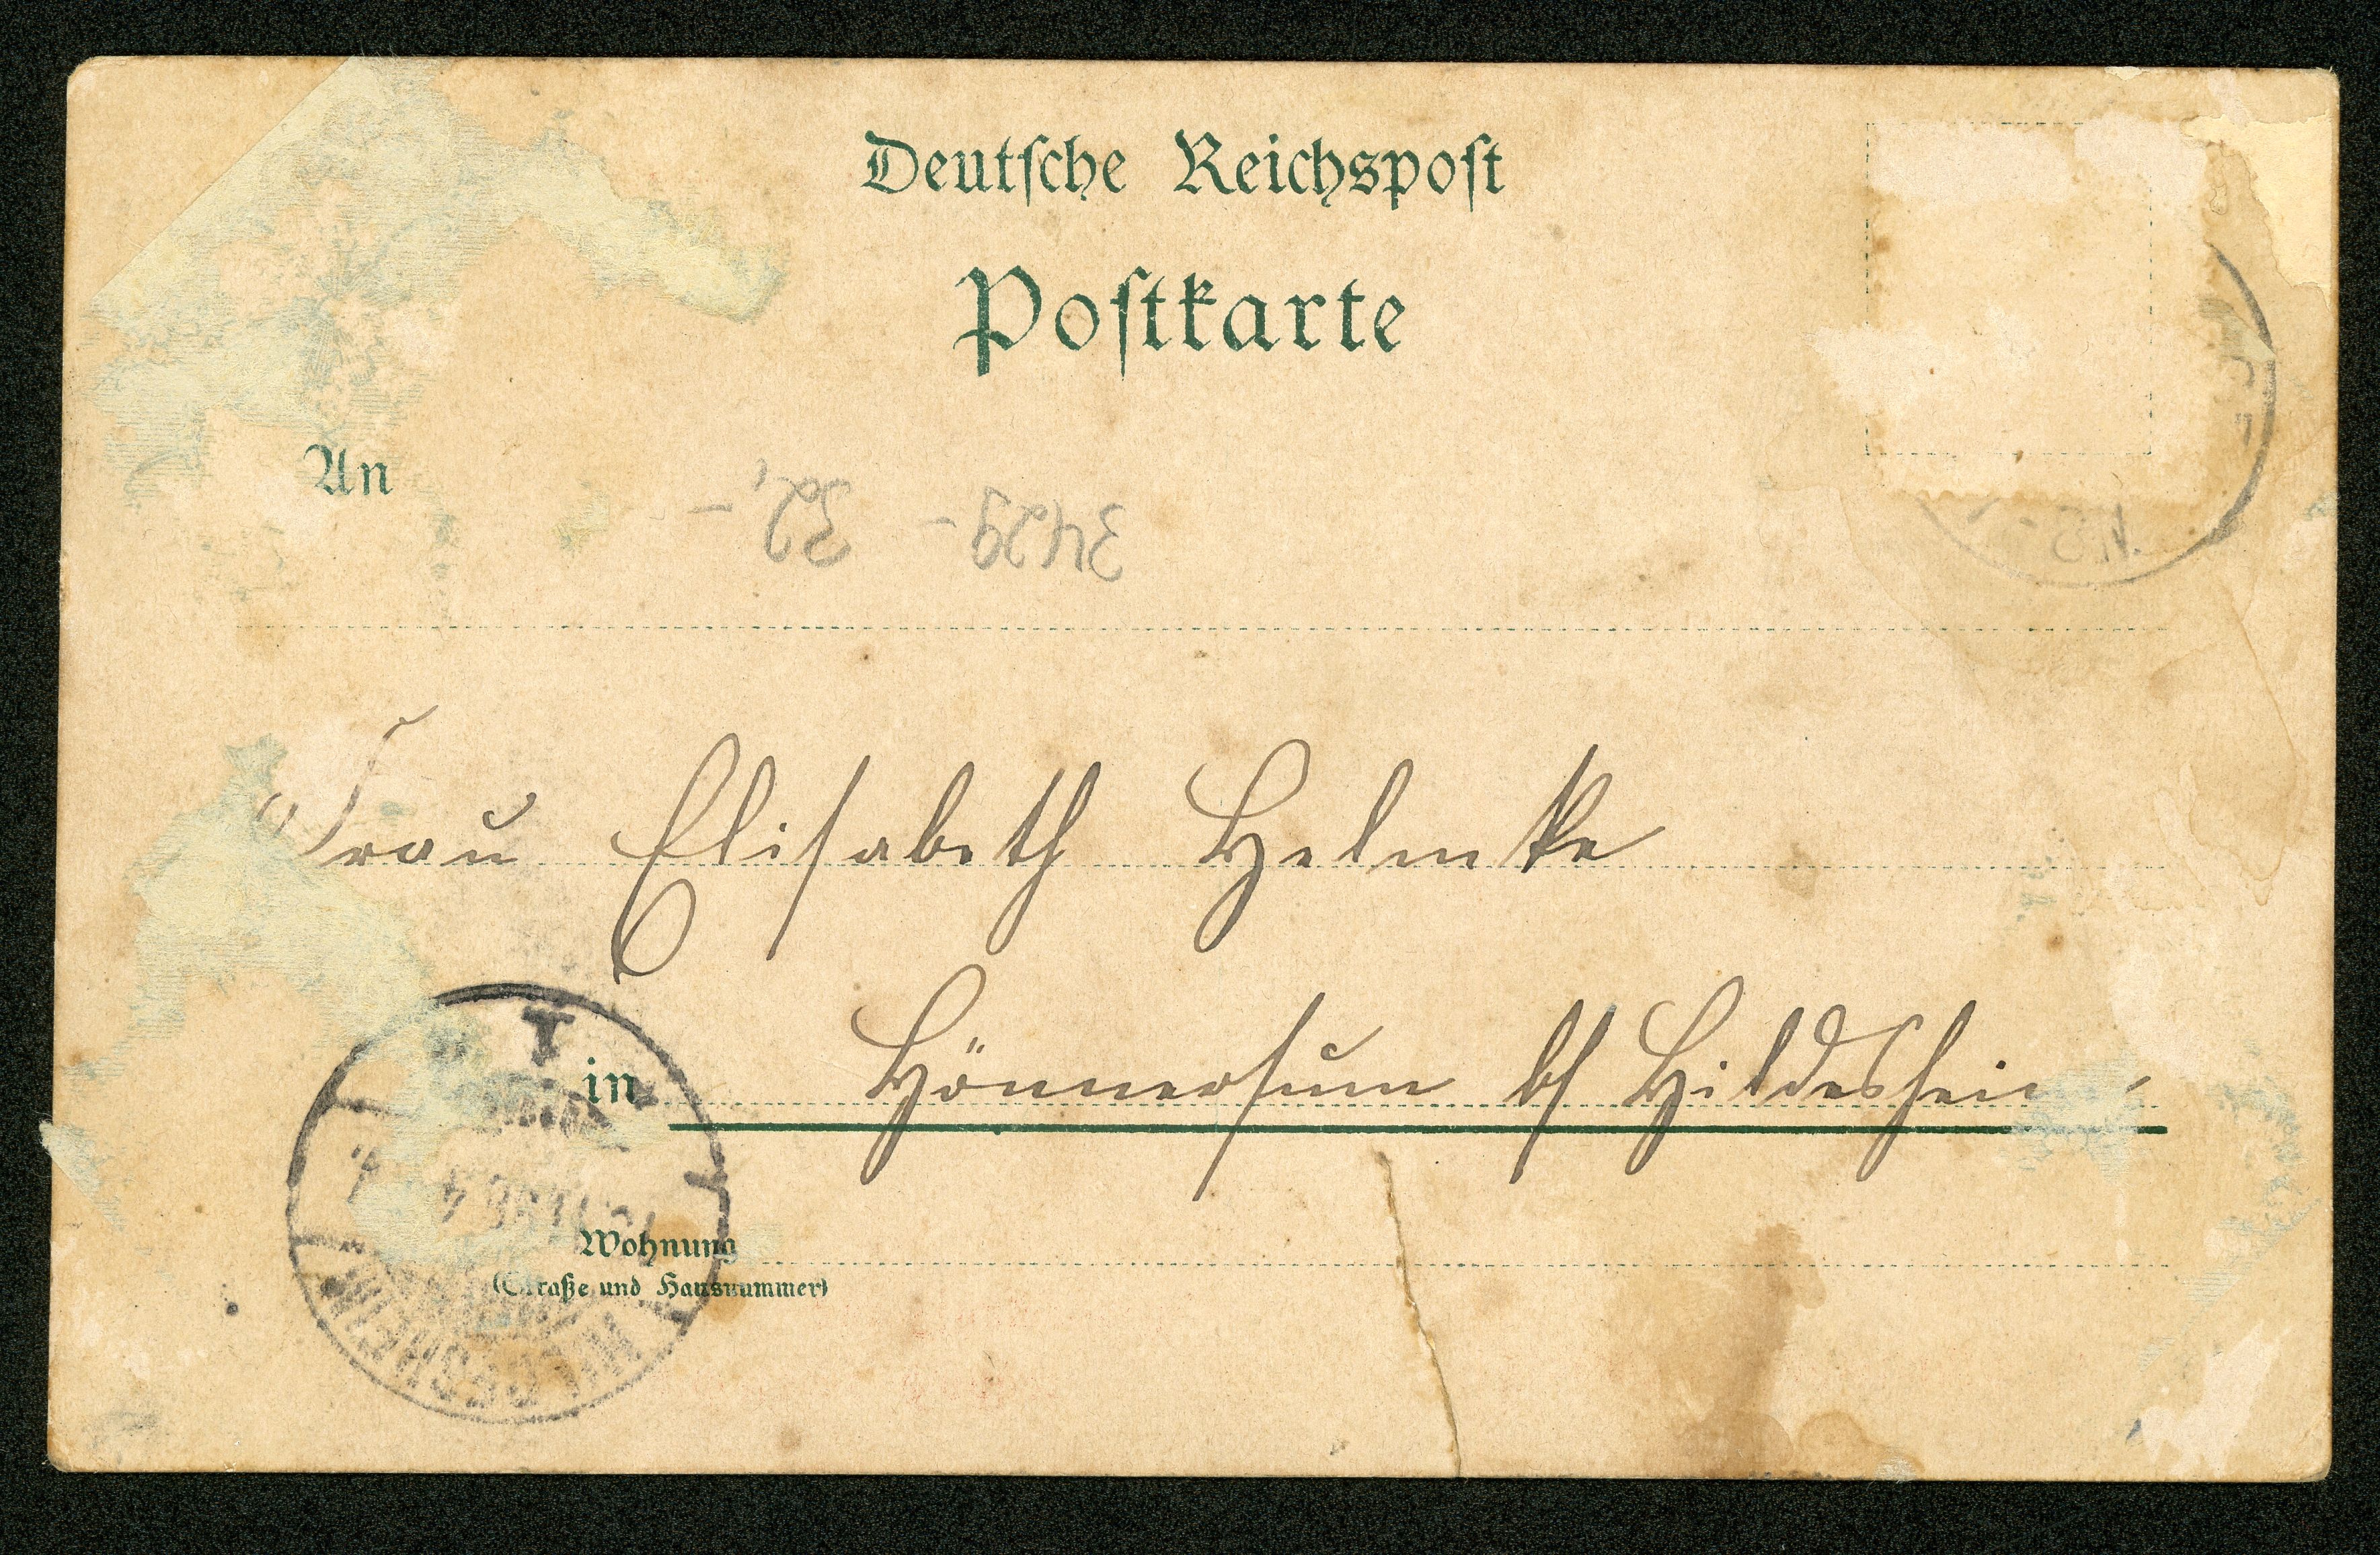 Deutſche Reichspoſt
Poſtkarte
An
3429 - 32,-
Frau Eliſabeth Helmke
in Hönnerſum b/ Hildesheim
Wohnung
(Straße und Hausnummer)
HILDESHEIM
1